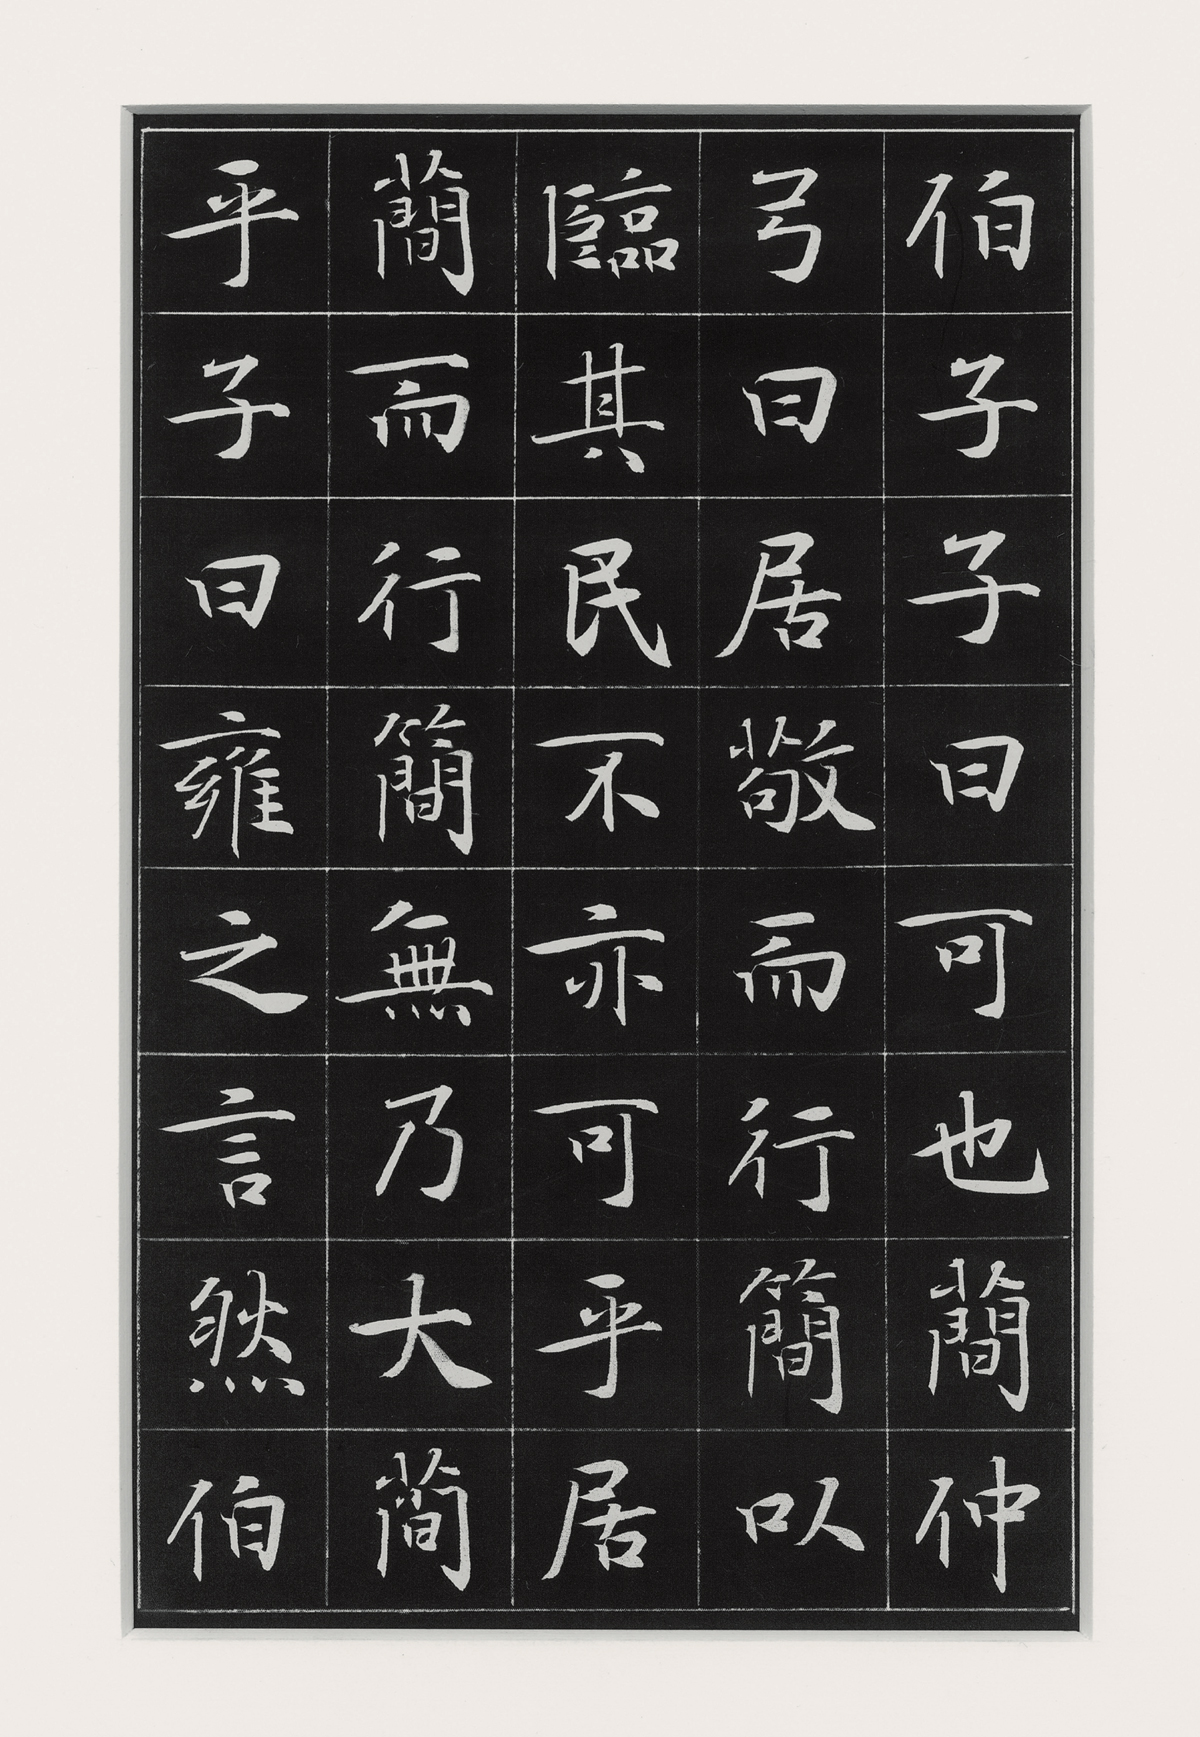 伯子子曰可也簡仲
弓曰居敬而行簡以
臨其民不亦可乎居
簡而行簡無乃大簡
乎子曰雍之言然伯